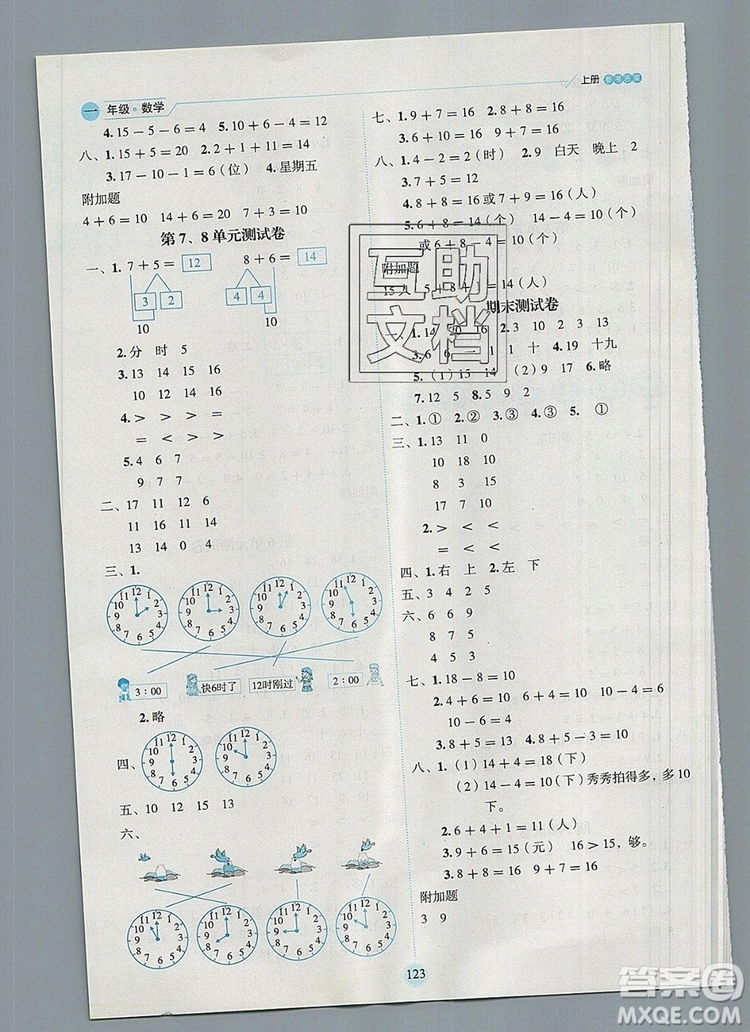 一 年级·数学
上册 参考答案
4.15－5－6＝4　5.10＋6－4＝12
八、1.15＋5＝20　2.2＋1＋11＝14
3.17－10－1＝6(位)　4.星期五
附加题
4＋6＝10　14＋6＝20　7＋3＝10
第7、8单元测试卷
一、1.7＋5＝12　8＋6＝14
3 2　4 4
10　10
2.分　时　5
3.13　14　15　16
10　14　15　16
4.＜　＞　＞　＝
＝　＜　＞　＞
5.4　6　7
9　7　7
二、17　11　16　6
11　16　11　14
13　14　0　4
三、1.
3：00　快6时了　12时刚过　2：00
2.略
四、
五、10　12　15　13
六、
七、1.9＋7＝16　2.8＋8＝16
3.6＋10＝16　9＋7＝16
八、1.4－2＝2(时)　2.9　白天　晚上　2
3.7＋5＝12
4.8＋8＝16或7＋9＝16(人)
5.6＋8＝14(个)　14－4＝10(个)
或6＋8－4＝10(个)
附加题
15人　5＋8＋　＝14(人)
期末测试卷
一、1.14　20　16　2.3　10　2　3　13
3.6　6　4.19　十九
5.(1)15　14　(2)9　6.略
7.12　5　8.5　9　2
二、1.①　2.②　3.③　4.③　5.①
三、1.13　11　0
10　18　8
8　3　15
17　7　10
2.＞　＜　＜
＝　＜　＜
四、1.右　上　2.左　下
五、3　4　2　5
六、6　6　9
8　7　5
4　5　3
七、1.18－8＝10
2.4＋6＝10　6＋4＝10　10－4＝6
10－6＝4
3.8＋5＝13　4.8＋5－3＝10
八、1.(1)14＋4＝18(下)
(2)14－4＝10(下)秀秀拍得多，多10
下。
2.6＋4＋1＝11(人)
3.9＋6＝15(元)　16＞15，够。
3.8＋8＝16　9＋7＝16
附加题
3　9
123
互助
文档
答案圈
MXQE.COM